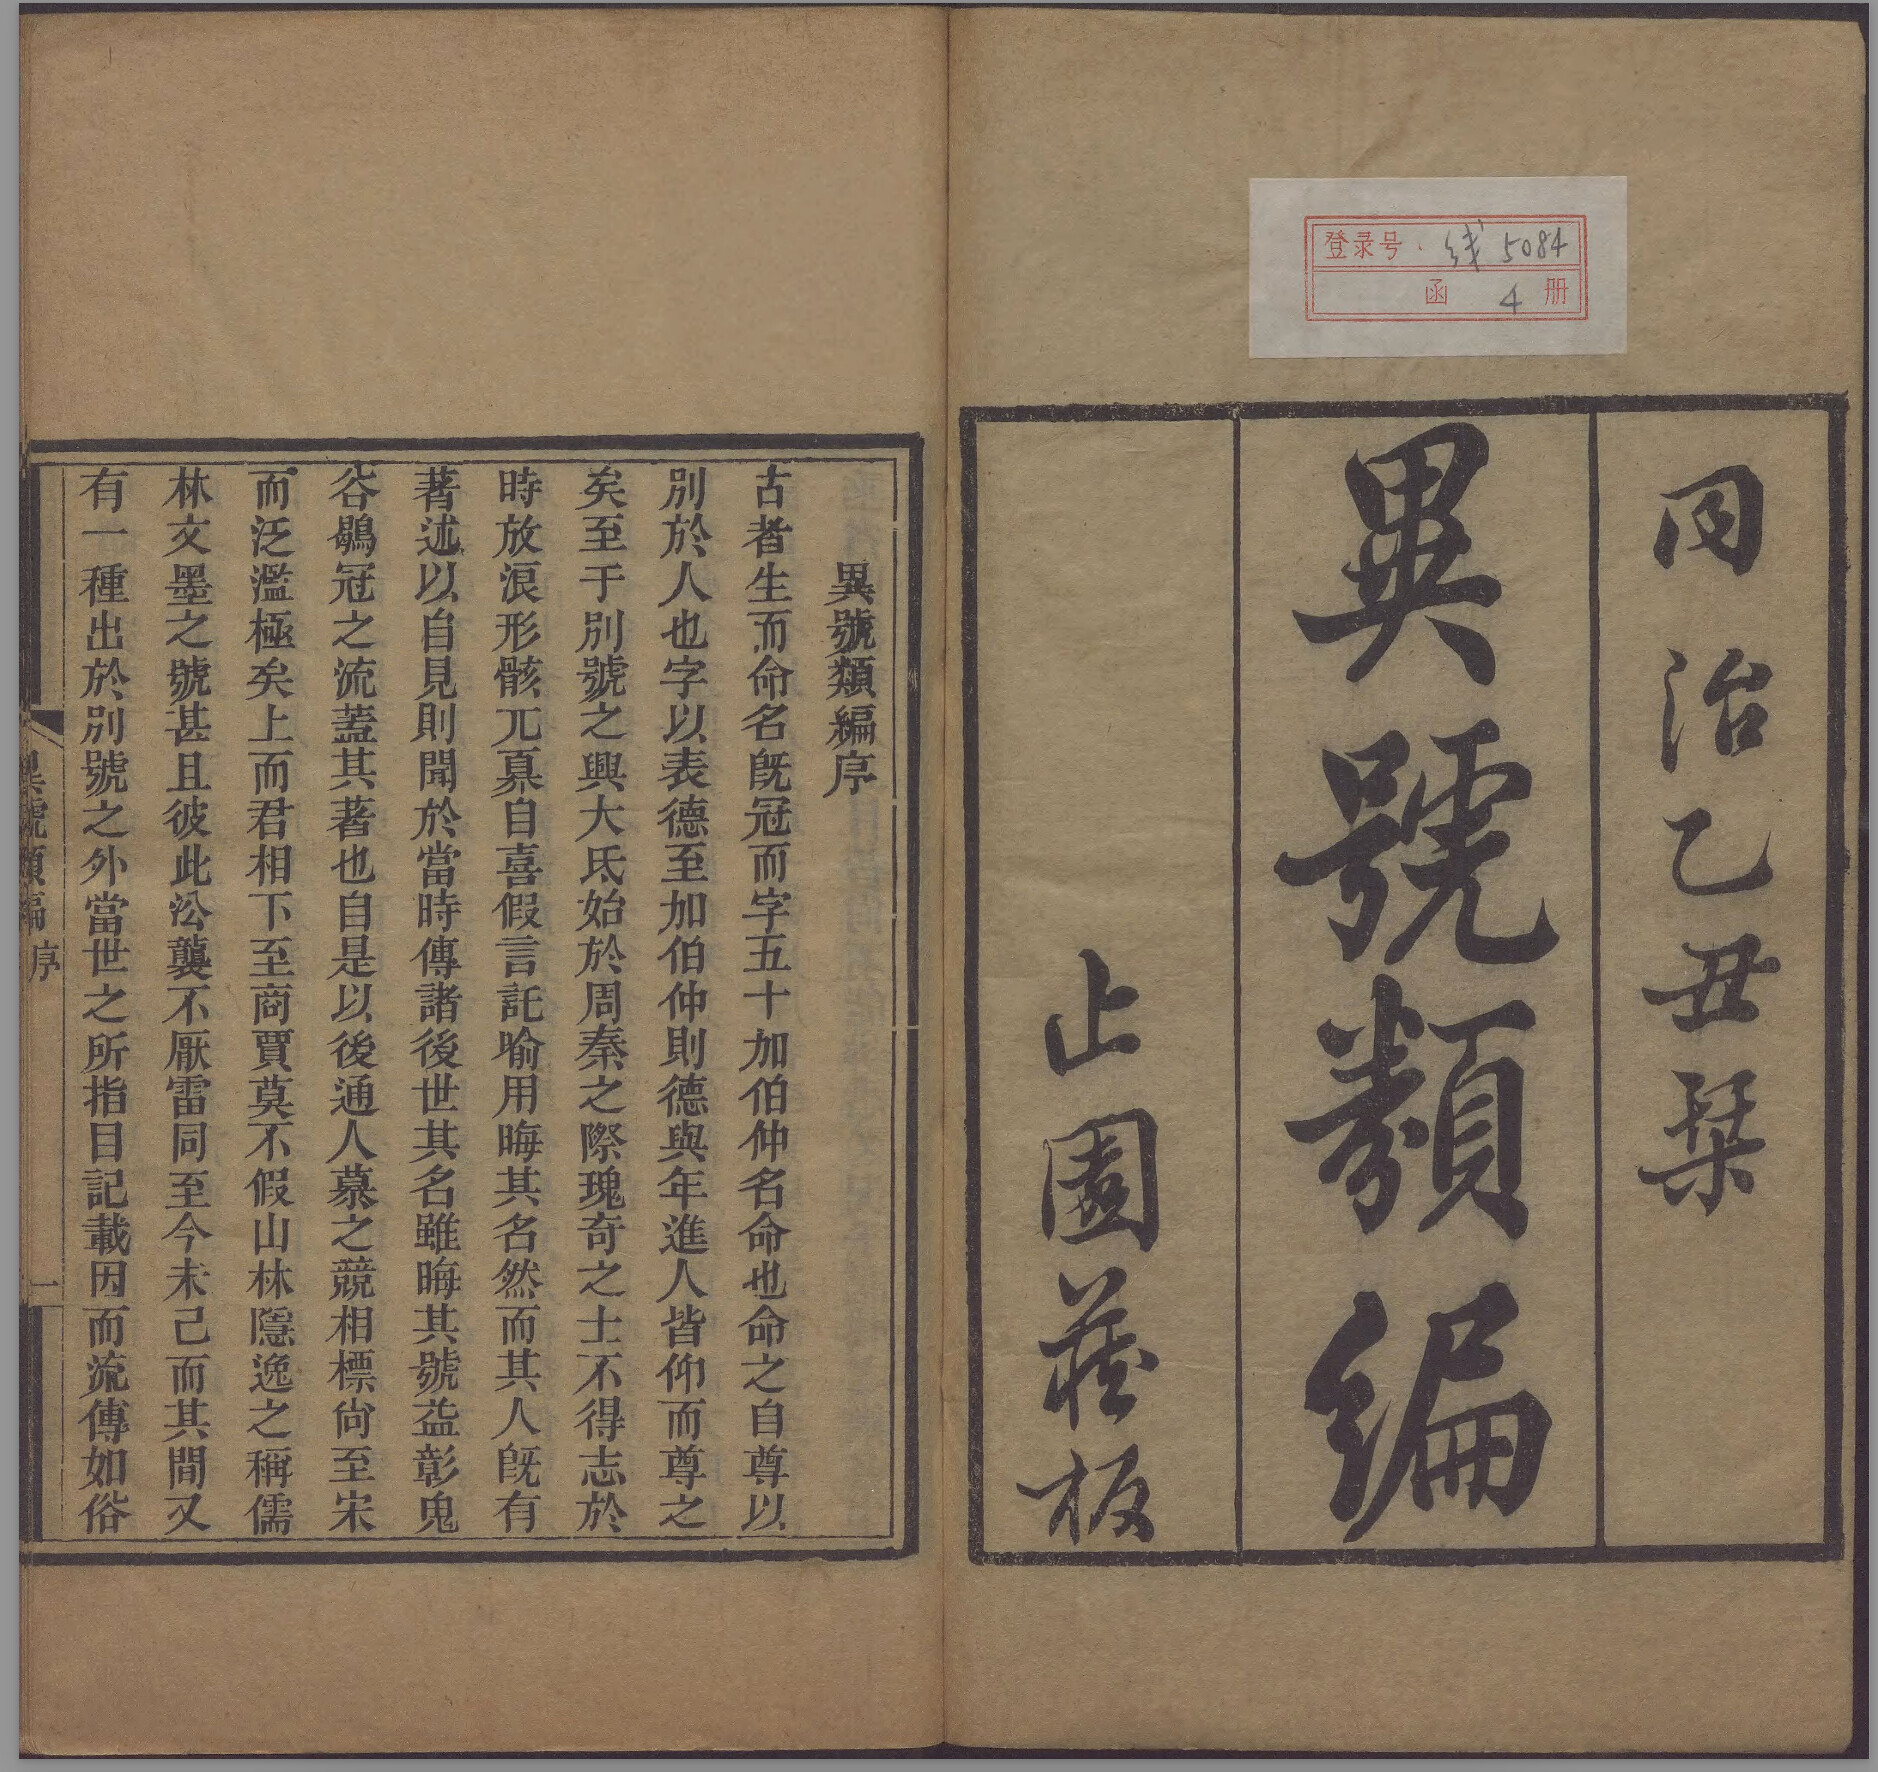 登录号：线5084
函 4 册
同治乙丑栞
異號類編
止園藏板
異號類編序
古者生而命名旣冠而字五十加伯仲名命也命之自尊以
別於人也字以表德至加伯仲則德與年進人皆仰而尊之
矣至于別號之興大氐始於周秦之際瑰奇之士不得志於
時放浪形骸兀奡自喜假言託喻用晦其名然而其人旣有
著述以自見則聞於當時傳諸後世其名雖晦其號益彰鬼
谷鶡冠之流蓋其著也自是以後通人慕之競相標尙至宋
而泛濫極矣上而君相下至商賈莫不假山林隱逸之稱儒
林文墨之號甚且彼此沿襲不厭雷同至今未已而其間又
有一種出於別號之外當世之所指目記載因而流傳如俗
異號類編 序 一